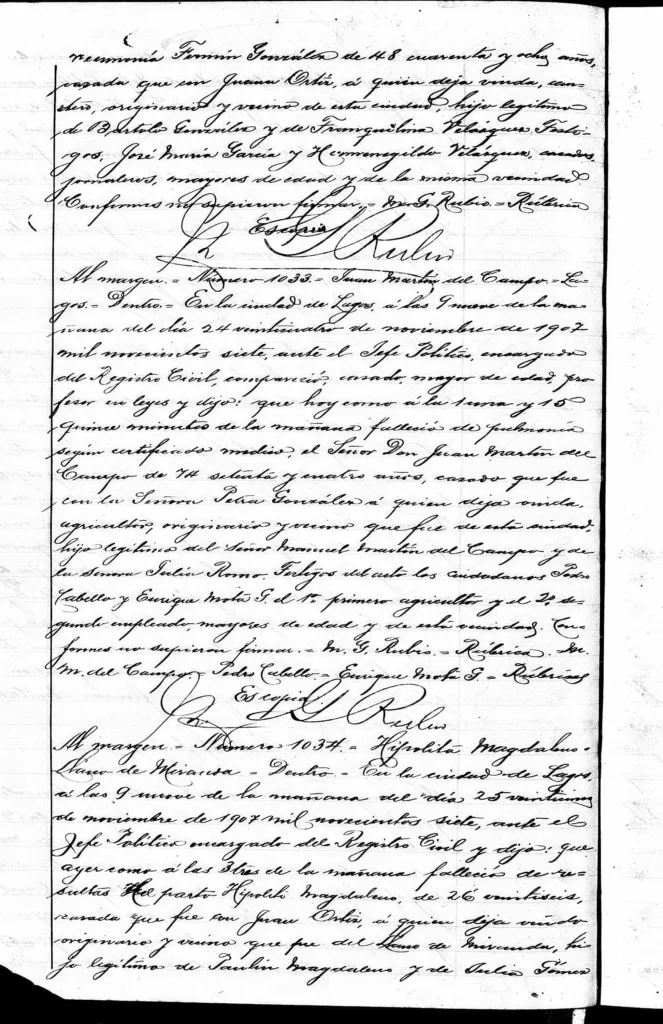 neumonía Fermín González de 48 cuarenta y ocho años,
casada que con Juana Ortíz, á quien deja viuda, can-
tero, originario y vecino de esta ciudad, hijo legítimo
de Bartolo González y de Tranquilina Velásquez. Testi-
gos, José María García y Hermenegildo Velásquez, casados,
jornaleros, mayores de edad y de la misma vecindad.
Conformes no supieron firmar. = M. G. Rubio. = Rúbrica
Es copia
G Rubio
Al margen. = Número 1033. = Juan Martín del Campo. = La-
gos. = Dentro. = En la ciudad de Lagos, á las 9 nueve de la ma-
ñana del día 24 veinticuatro de noviembre de 1907
mil novecientos siete, ante el Jefe Político, encargado
del Registro Civil, compareció, casado, mayor de edad, pro-
fesor en leyes y dijo: que hoy como á la 1 una y 15
quince minutos de la mañana falleció de pulmonía
según certificado médico, el Señor Don Juan Martín del
Campo de 74 setenta y cuatro años, casado que fue
con la Señora Petra González á quien deja viuda,
agricultor, originario y vecino que fue de esta ciudad,
hijo legítimo del Señor Manuel Martín del Campo y de
la Señora Julia Romo. Testigos del acto los ciudadanos Pedro
Cabello y Enrique Mota T. el 1º primero agricultor y el 2º se-
gundo empleado, mayores de edad y de esta vecindad. Con-
formes no supieron firmar. = M. G. Rubio. = Rúbrica. M.
M. del Campo. = Pedro Cabello. = Enrique Mota T. = Rúbricas
Es copia.
G Rubio
Al margen. = Número 1034. = Hipolita Magdaleno. =
Llano de Miranda = Dentro. = En la ciudad de Lagos,
á las 9 nueve de la mañana del día 25 veinticinco
de noviembre de 1907 mil novecientos siete, ante el
Jefe Político encargado del Registro Civil y dijo: que
ayer como á las 3 tres de la mañana falleció de re-
sultas del parto Hipolita Magdaleno, de 26 veintiseis,
casada que fue con Juan Ortíz, á quien deja viudo
originario y vecino que fue del Llano de Miranda, hi-
jo legítimo de Paulin Magdaleno y de Julia Gómez